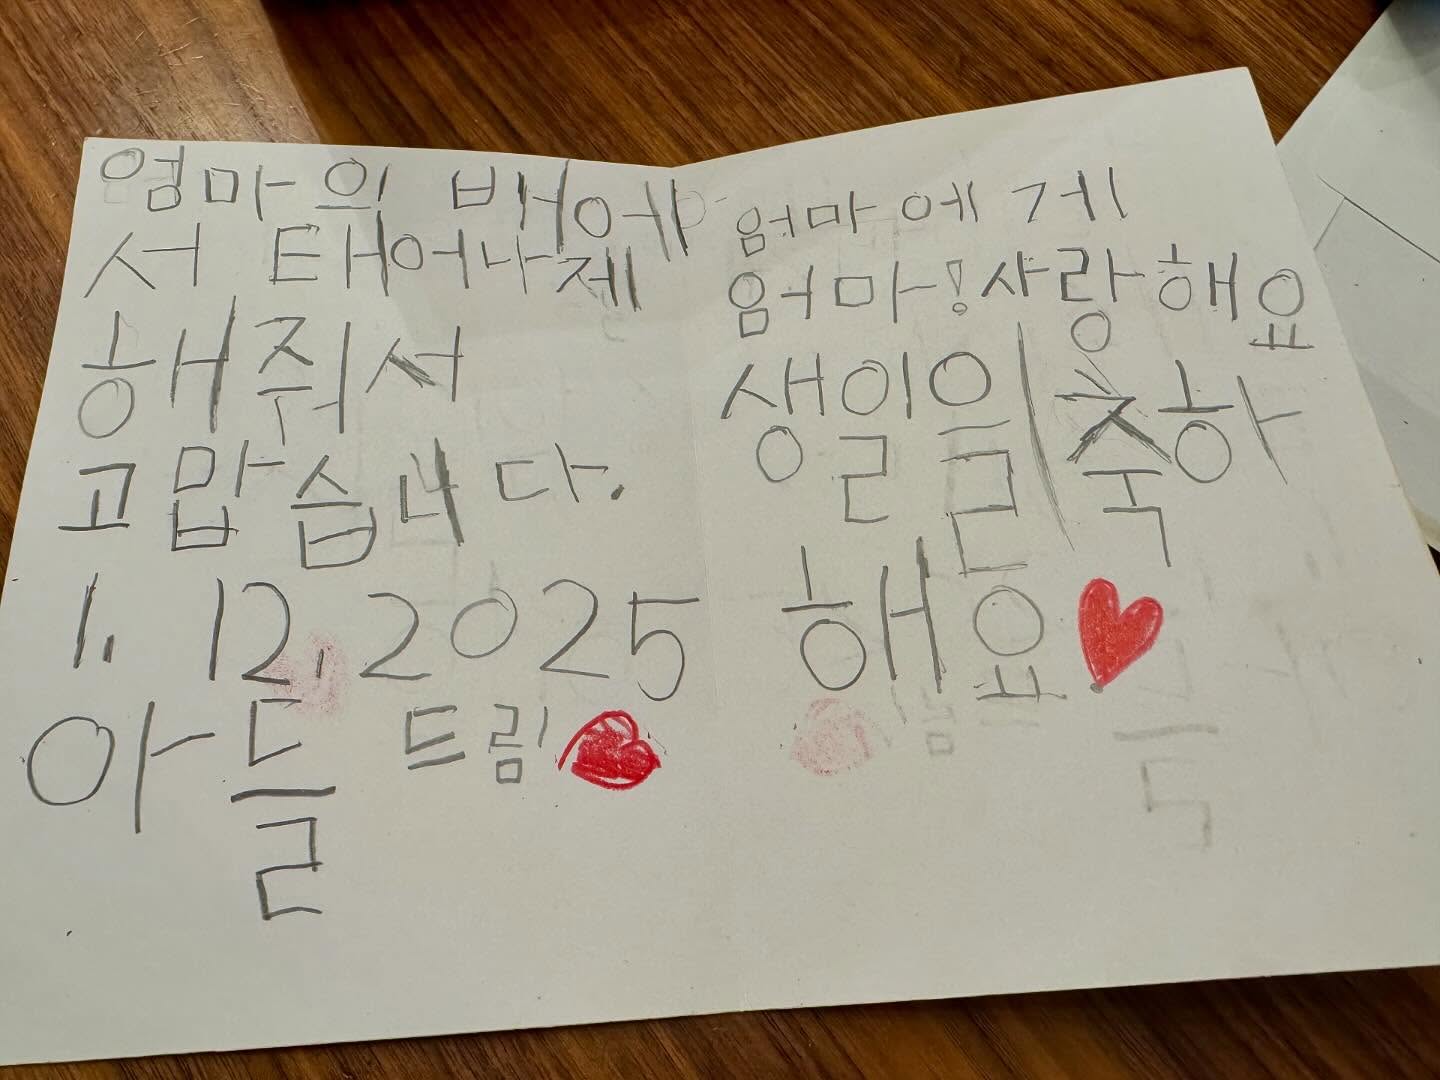 엄마에게
엄마! 사랑해요
생일을 축하
해요
엄마의 배에
서 태어나제
해줘서
고맙습니다.
1. 12. 2025
아들 드림